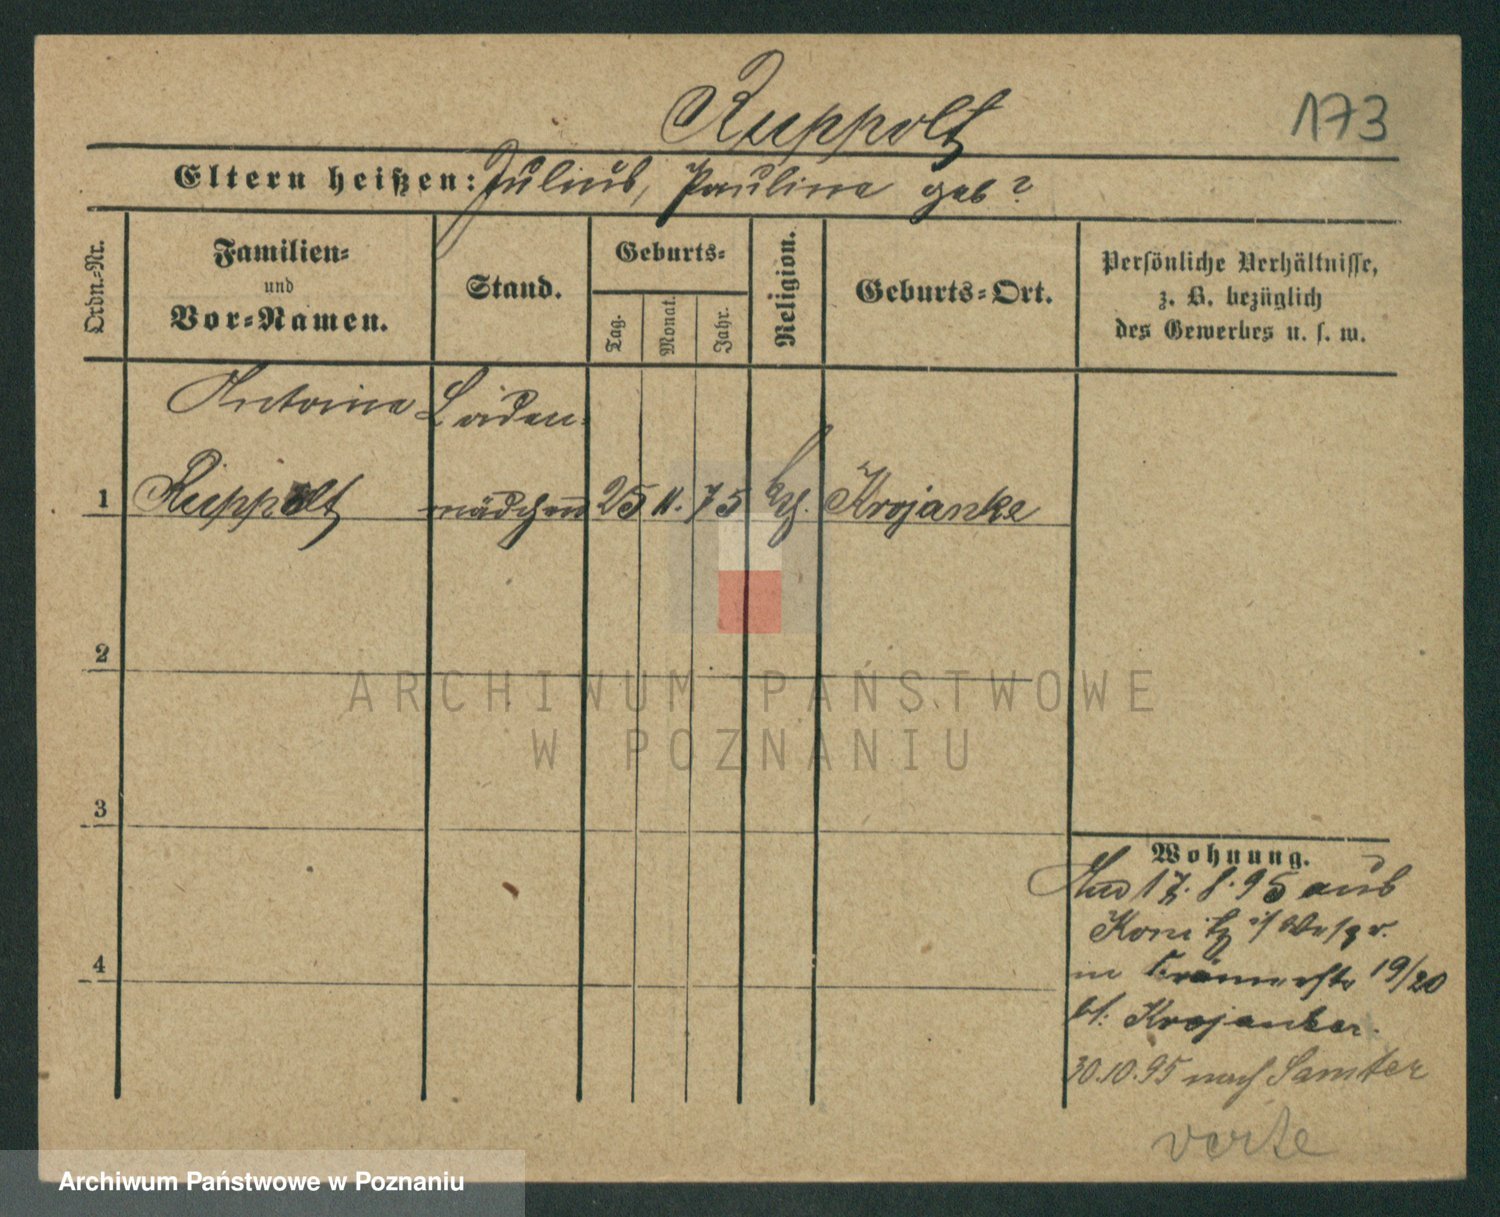 Ruppolt
173
Eltern heißen: Julius, Pauline geb?
Ordn.-Nr.
Familien-
und
Vor-Namen.
Stand.
Geburts-
Tag.
Monat.
Jahr.
Religion.
Geburts-Ort.
Persönliche Verhältnisse,
z. B. bezüglich
des Gewerbes u. s. w.
Antonie Laden-
1 Ruppolt mädchen 25 11. 75 kth. Krojanke
2
ARCHIWUM PAŃSTWOWE
W POZNANIU
3
Wohnung.
17. 8. 95 aus
Konitz i/ Westpr.
19/20
bt: Krojanker.
4
30.10.95 nach Samter
verte
Archiwum Państwowe w Poznaniu